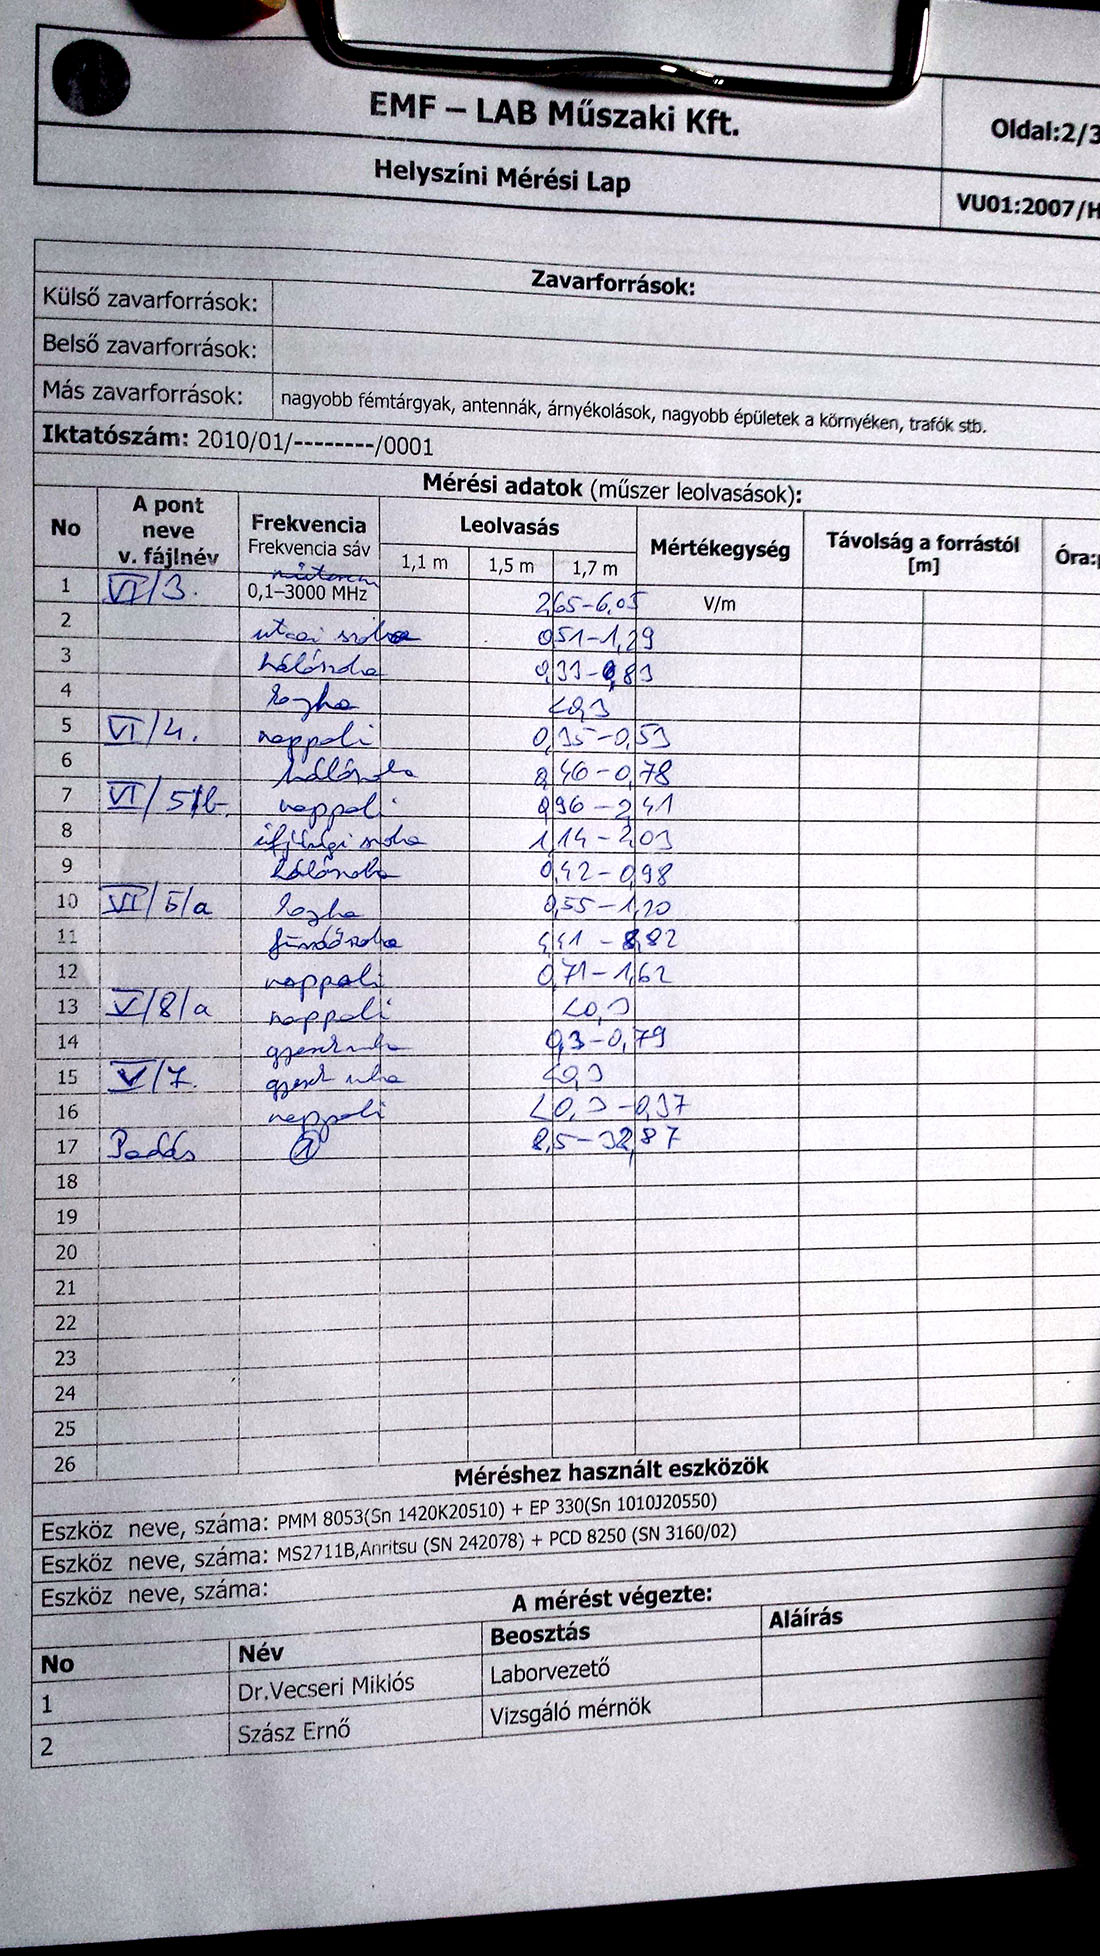 EMF – LAB Műszaki Kft.
Oldal:2/3
Helyszíni Mérési Lap
VU01:2007/H
Zavarforrások:
Külső zavarforrások:
Belső zavarforrások:
Más zavarforrások: nagyobb fémtárgyak, antennák, árnyékolások, nagyobb épületek a környéken, trafók stb.
Iktatószám: 2010/01/--------/0001
Mérési adatok (műszer leolvasások):
No A pont neve v. fájlnév Frekvencia Frekvencia sáv Leolvasás 1,1 m 1,5 m 1,7 m Mértékegység Távolság a forrástól [m] Óra:p
1 VI/3. 0,1–3000 MHz 2,65-6,05 V/m
2 utcai szoba 0,51-1,29
3 hálószoba 0,33-0,83
4 konyha <0,3
5 VI/4. nappali 0,35-0,53
6 hálószoba 0,46-0,78
7 VI/5/b. nappali 0,96-2,41
8 ifjúsági szoba 1,14-2,03
9 hálószoba 0,42-0,98
10 VI/5/a konyha 0,55-1,20
11 fürdőszoba
12 nappali 0,71-1,62
13 V/8/a nappali <0,3
14 0,3-0,79
15 V/7. <0,3
16 nappali <0,3-0,37
17 Padlás 1 8,5-32,87
18
19
20
21
22
23
24
25
26
Méréshez használt eszközök
Eszköz neve, száma: PMM 8053(Sn 1420K20510) + EP 330(Sn 1010J20550)
Eszköz neve, száma: MS2711B,Anritsu (SN 242078) + PCD 8250 (SN 3160/02)
Eszköz neve, száma:
A mérést végezte:
No Név Beosztás Aláírás
1 Dr.Vecseri Miklós Laborvezető
2 Szász Ernő Vizsgáló mérnök